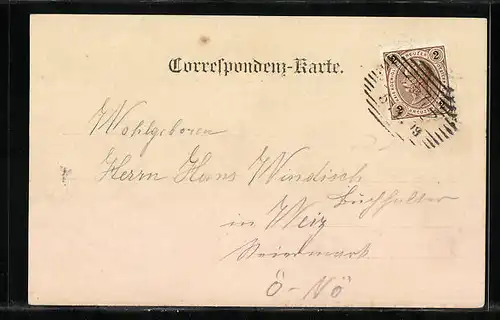 Correspondenz-Karte.
2 2
2 2
19
Wohlgeboren
Herrn Hans Windisch
Buchhalter
in Weiz
Steiermark
Ö-Nö